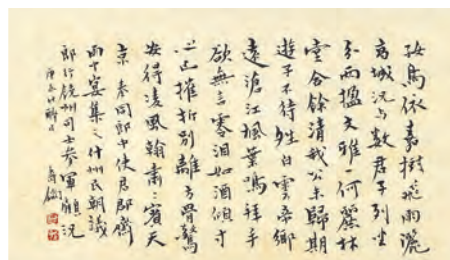 好鳥依嘉樹飛雨灑
高城況与數君子列坐
分兩楹文雅一何麗林
堂含餘清我公未歸期
遊子不待晴白雲帝鄉
遠滄江楓葉鳴拜手
欲無言零淚如酒傾寸
心已摧折別離方骨驚
安得凌風翰肅肅賓天
京 奉同郎中使君郡齋
雨中宴集之什州民朝議
郎行饒州司士參軍顧況